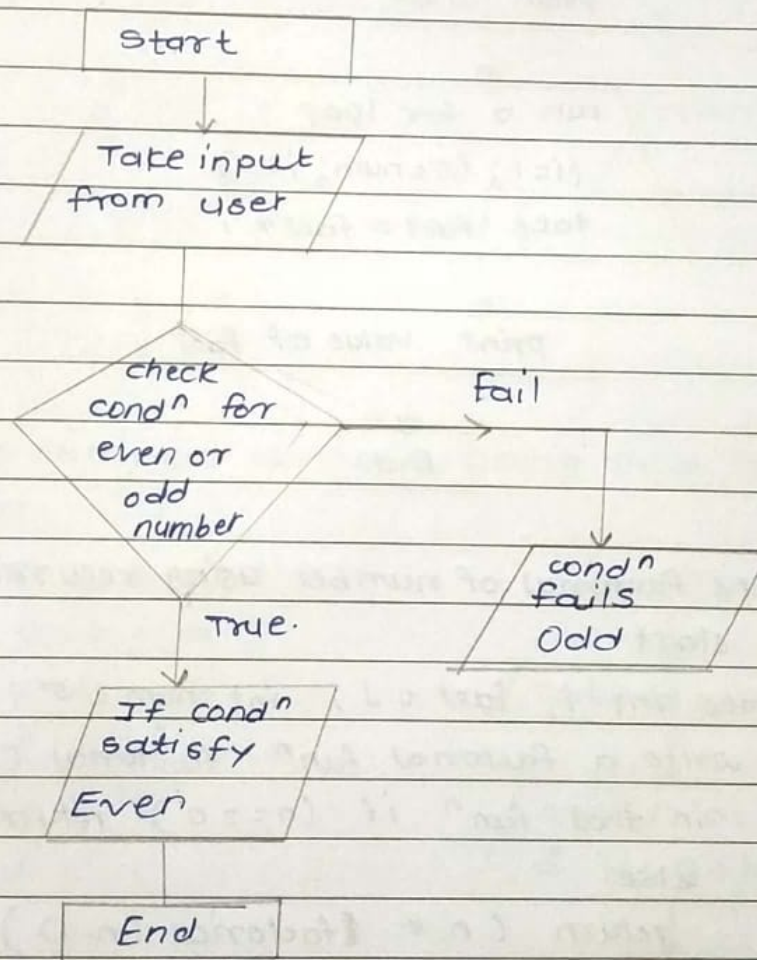 Start
Take input
from user
check
condⁿ for
even or
odd
number
Fail
condⁿ
fails
Odd
True.
If condⁿ
satisfy
Even
End